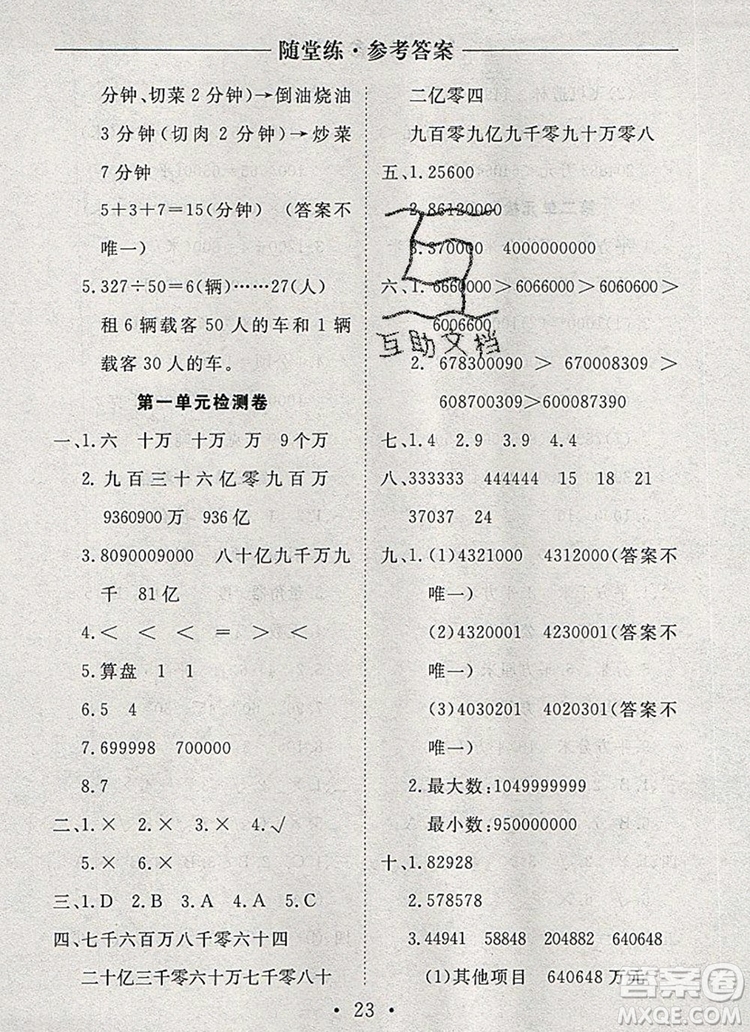 随堂练·参考答案
分钟、切菜 2 分钟)→倒油烧油
3 分钟(切肉 2 分钟)→炒菜
7 分钟
5+3+7=15(分钟) (答案不
唯一)
5.327÷50=6(辆)……27(人)
租 6 辆载客 50 人的车和 1 辆
载客 30 人的车。
第一单元检测卷
一、1.六 十万 十万 万 9 个万
2.九百三十六亿零九百万
9360900 万 936 亿
3.8090009000 八十亿九千万九
千 81 亿
4.< < < = > <
5.算盘 1 1
6.5 4
7.699998 700000
8.7
二、1.× 2.× 3.× 4.√
5.× 6.×
三、1.D 2.B 3.A 4.A 5.C
四、七千六百万八千零六十四
二十亿三千零六十万七千零八十
二亿零四
九百零九亿九千零九十万零八
五、1.25600
2.86120000
3.370000 4000000000
六、1.6660000>6066000>6060600>
6006600
2. 678300090 > 670008309 >
608700309>600087390
七、1.4 2.9 3.9 4.4
八、333333 444444 15 18 21
37037 24
九、1.(1)4321000 4312000(答案不
唯一)
(2)4320001 4230001(答案不
唯一)
(3)4030201 4020301(答案不
唯一)
2.最大数:1049999999
最小数:950000000
十、1.82928
2.578578
3.44941 58508 204882 640648
(1)其他项目 640648 万元
· 23 ·
互助文档
答案圈
MXQE.COM